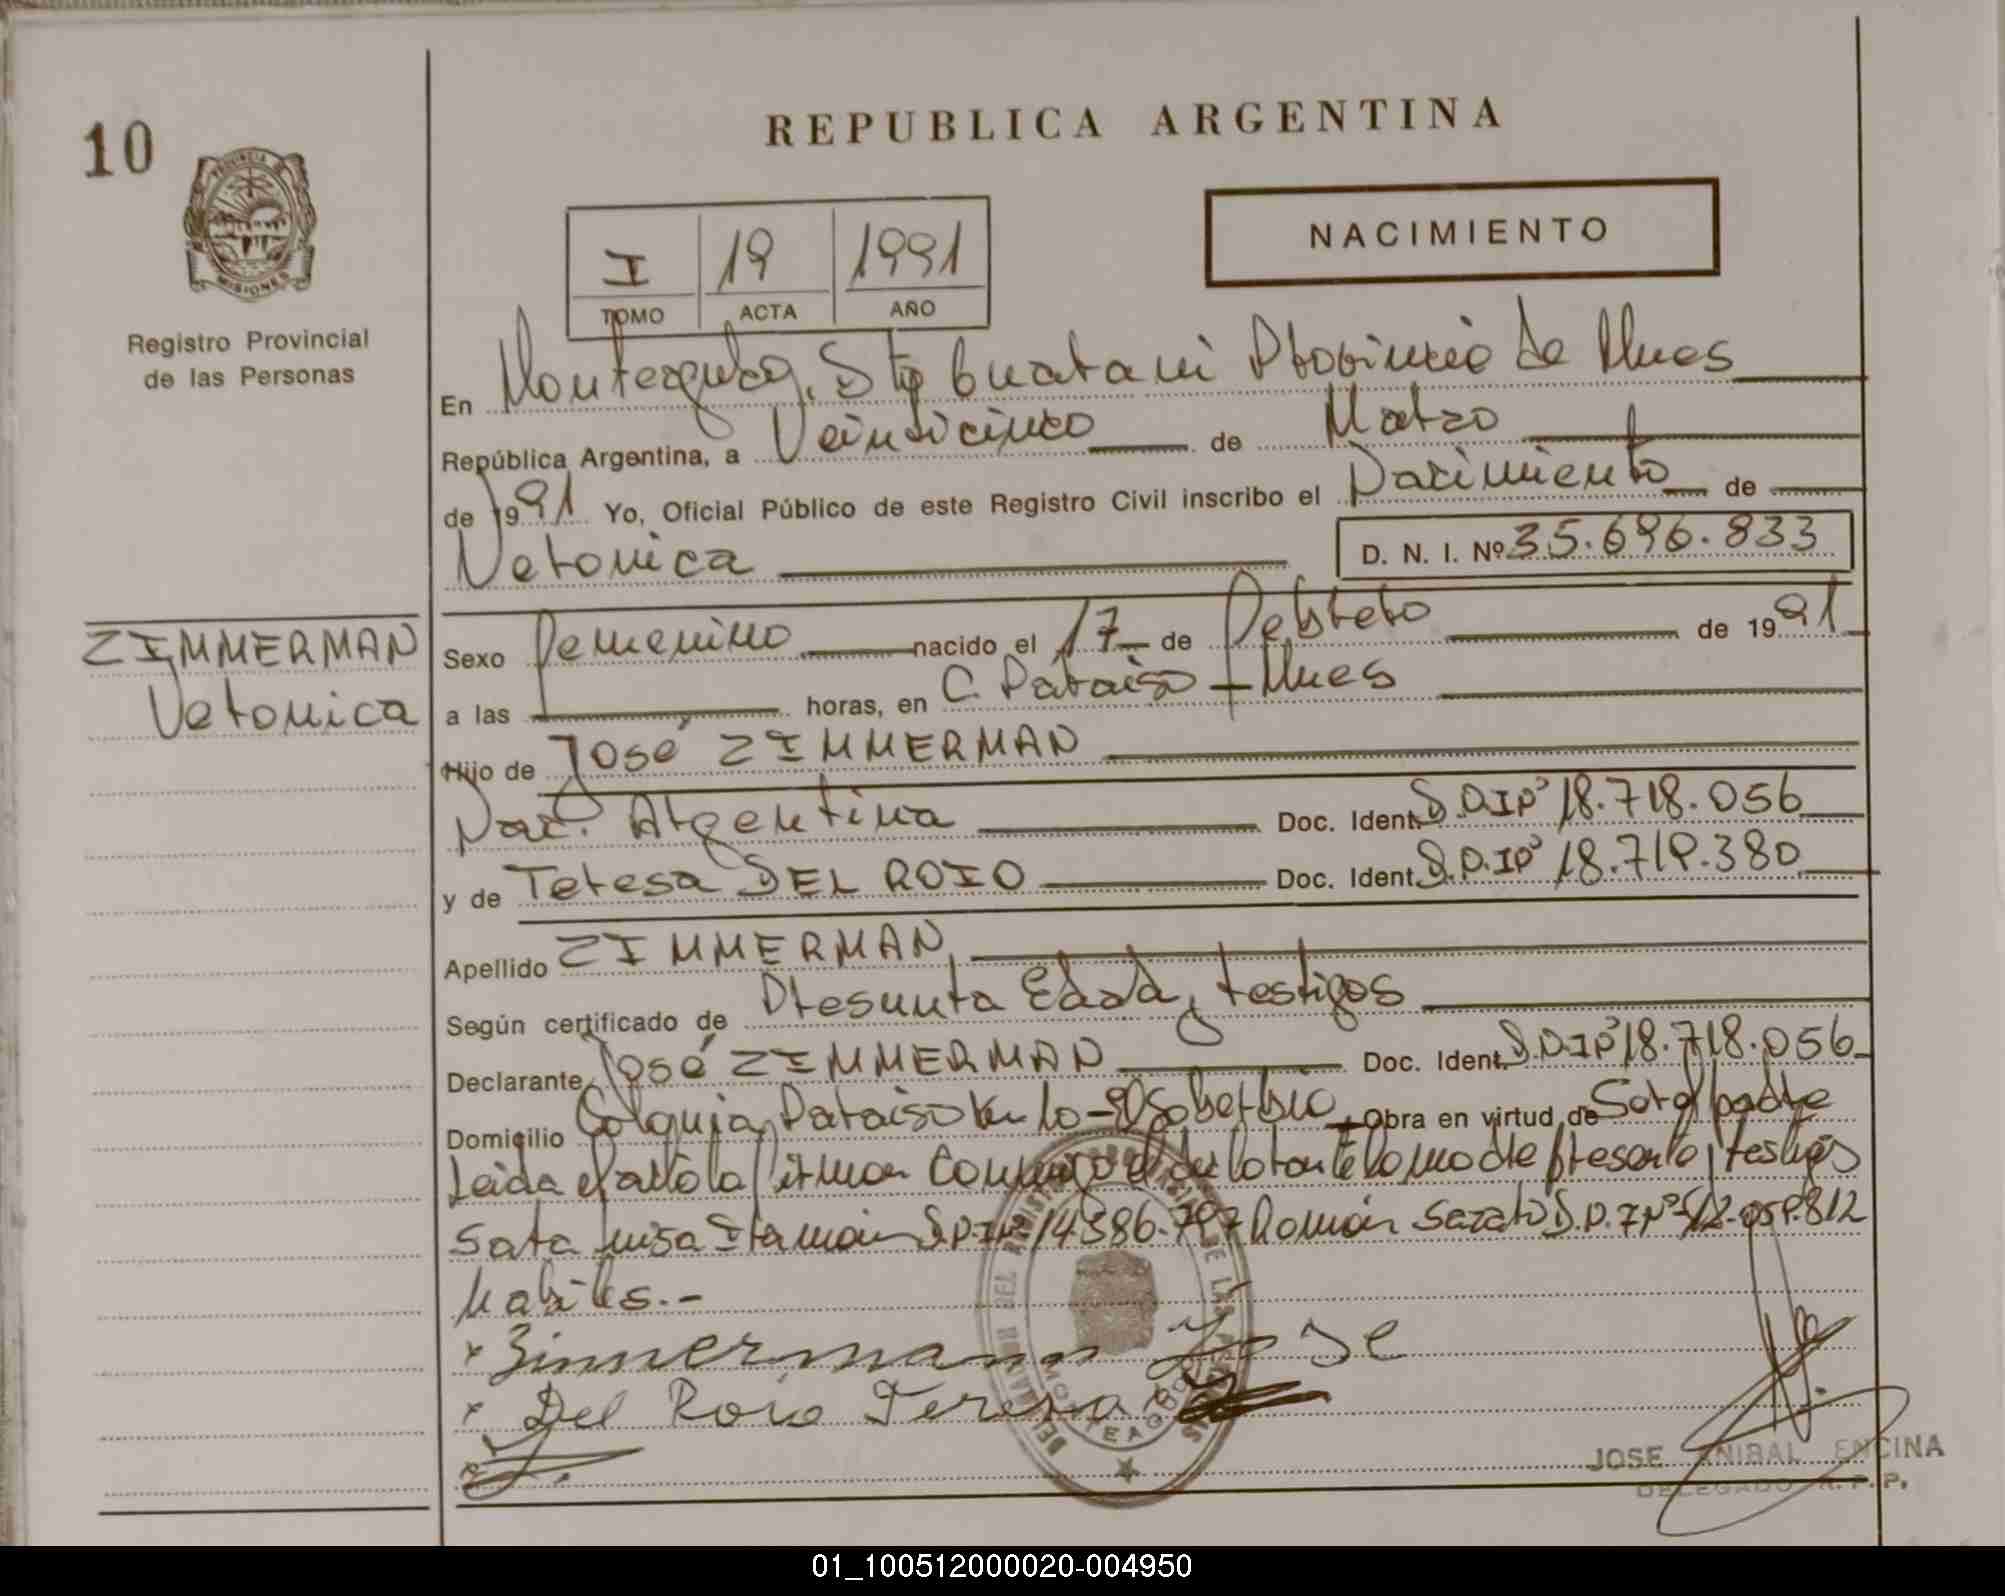 10
REPUBLICA ARGENTINA
PROVINCIA DE
MISIONES
Registro Provincial
de las Personas
NACIMIENTO
I 19 1991
TOMO ACTA AÑO
En Monteagudo, Dto Guarani Provincia de Mnes
República Argentina, a Veinticinco de Marzo
de 1991 Yo, Oficial Público de este Registro Civil inscribo el Nacimiento de
Veronica
D. N. I. Nº 35.696.833
ZIMMERMAN
Veronica
Sexo femenino nacido el 17 de Febrero de 1991
a las horas, en C. Paraiso - Mnes
Hijo de José ZIMMERMAN
Nac. Argentina Doc. Ident. D.N.Iº 18.718.056
y de Teresa DEL ROIO Doc. Ident. D.N.Iº 18.719.380
Apellido ZIMMERMAN
Según certificado de Presunta Edad, testigos
Declarante José ZIMMERMAN Doc. Ident. D.N.Iº 18.718.056
Domicilio Colonia Paraiso Km 10 - El Soberbio Obra en virtud de Ser el padre
Leida el acta la firman conmigo el declarante la madre presente y testigos
Sara Luisa D.N.I Nº 14.386.797 Román D.N.I Nº 12.059.812
habiles.-
x Zimmermann Jose
x Del Roio Teresa
JOSE ANIBAL ENCINA
DELEGADO R. P. P.
01_100512000020-004950